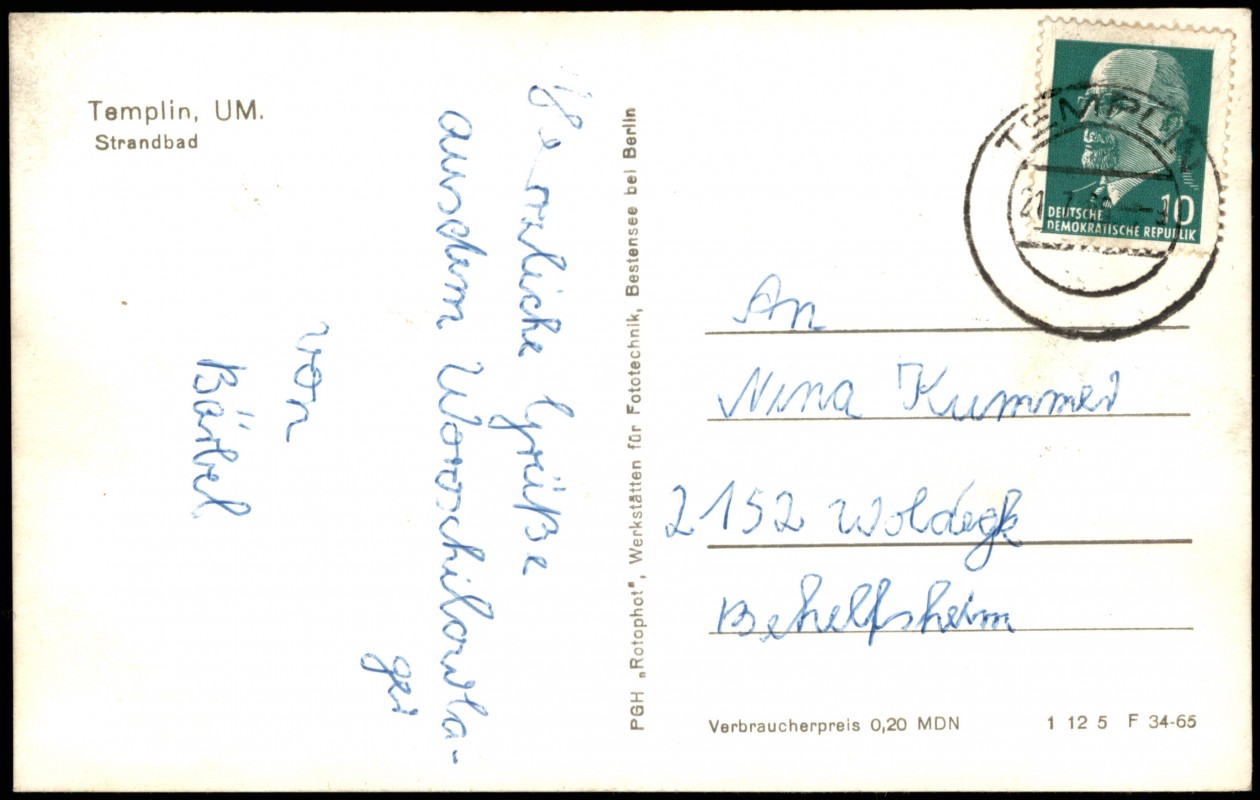 Templin, UM.
Strandbad
Herzliche Grüße
aus dem Woroschilowla-
ger
von
Bärbel
PGH „Rotophot", Werkstätten für Fototechnik, Bestensee bei Berlin
TEMPLIN
21.7.
10
DEUTSCHE
DEMOKRATISCHE REPUBLIK
An
Nina Kummer
2152 Woldegk
Behelfsheim
Verbraucherpreis 0,20 MDN 1 12 5 F 34-65